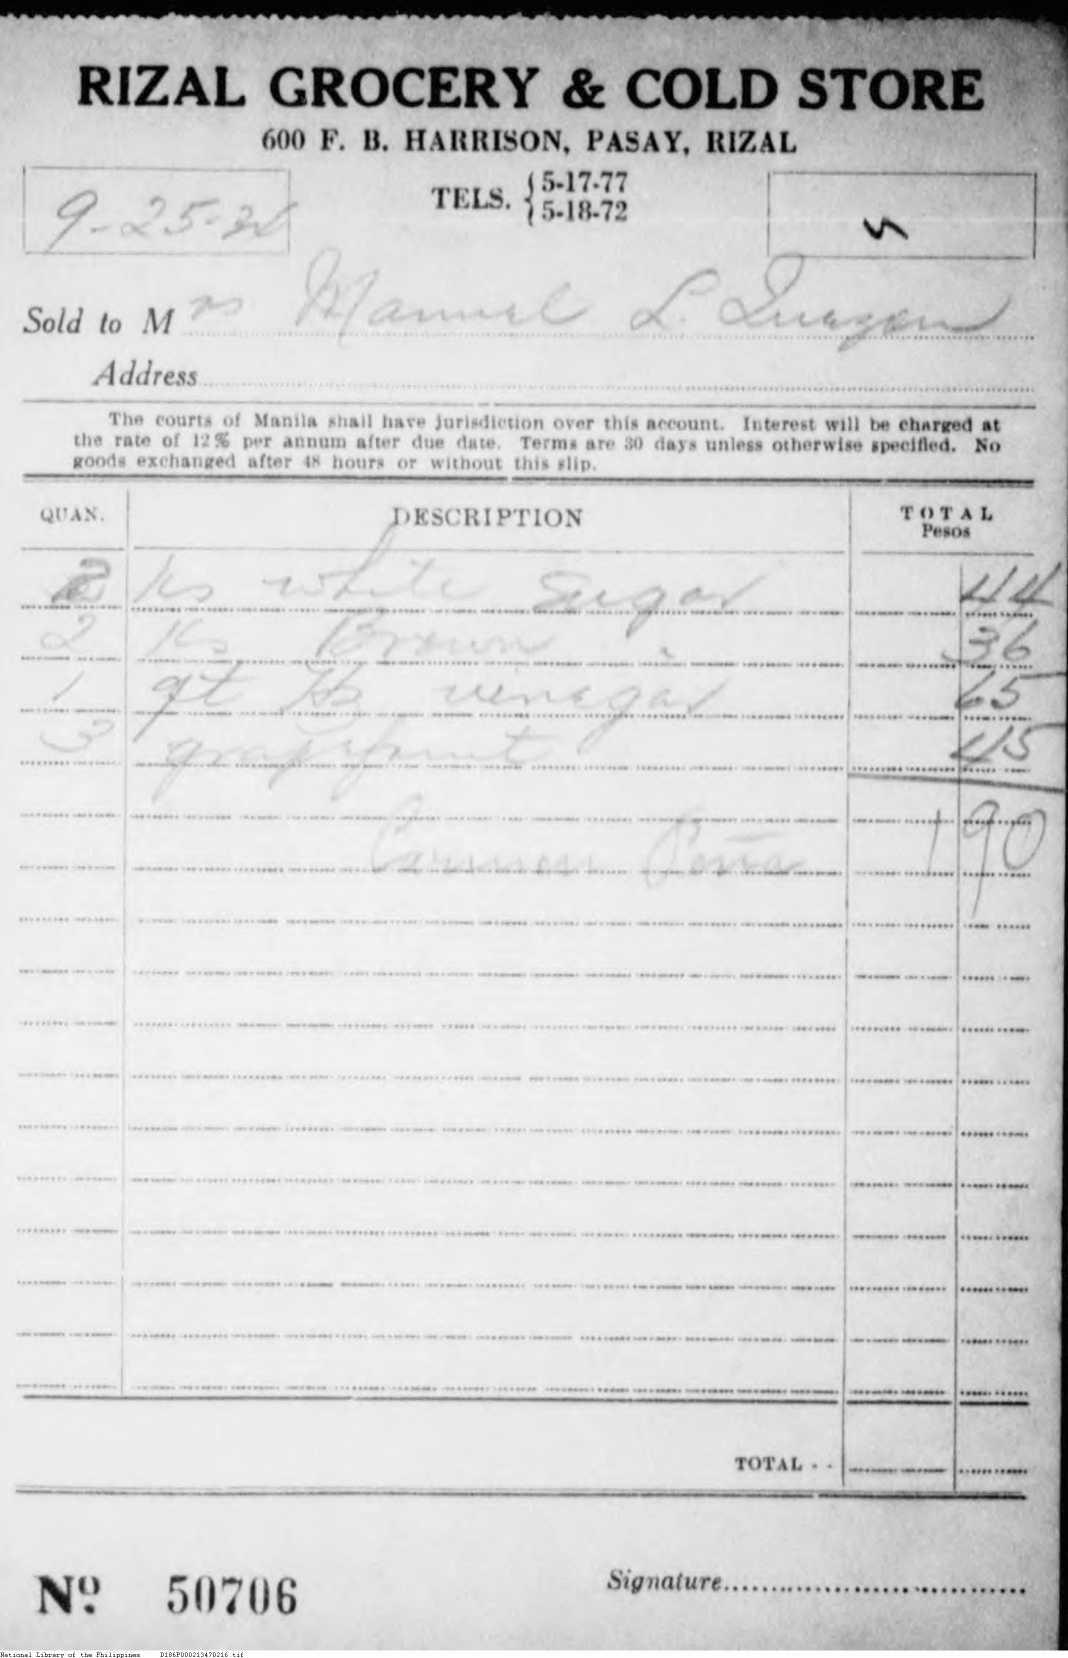 RIZAL GROCERY & COLD STORE
600 F. B. HARRISON, PASAY, RIZAL
TELS. { 5-17-77
5-18-72
9-25-
5
Sold to M rs Manuel L. Quezon
Address
The courts of Manila shall have jurisdiction over this account. Interest will be charged at
the rate of 12% per annum after due date. Terms are 30 days unless otherwise specified. No
goods exchanged after 48 hours or without this slip.
QUAN. DESCRIPTION TOTAL
Pesos
2 Ks white sugar 44
2 Ks Brown " 36
1 qt venegar 65
3 grapefruit 45
1 90
Carmen Peña
TOTAL - -
Nº 50706
Signature
National Library of the Philippines D186P000213470216.tif